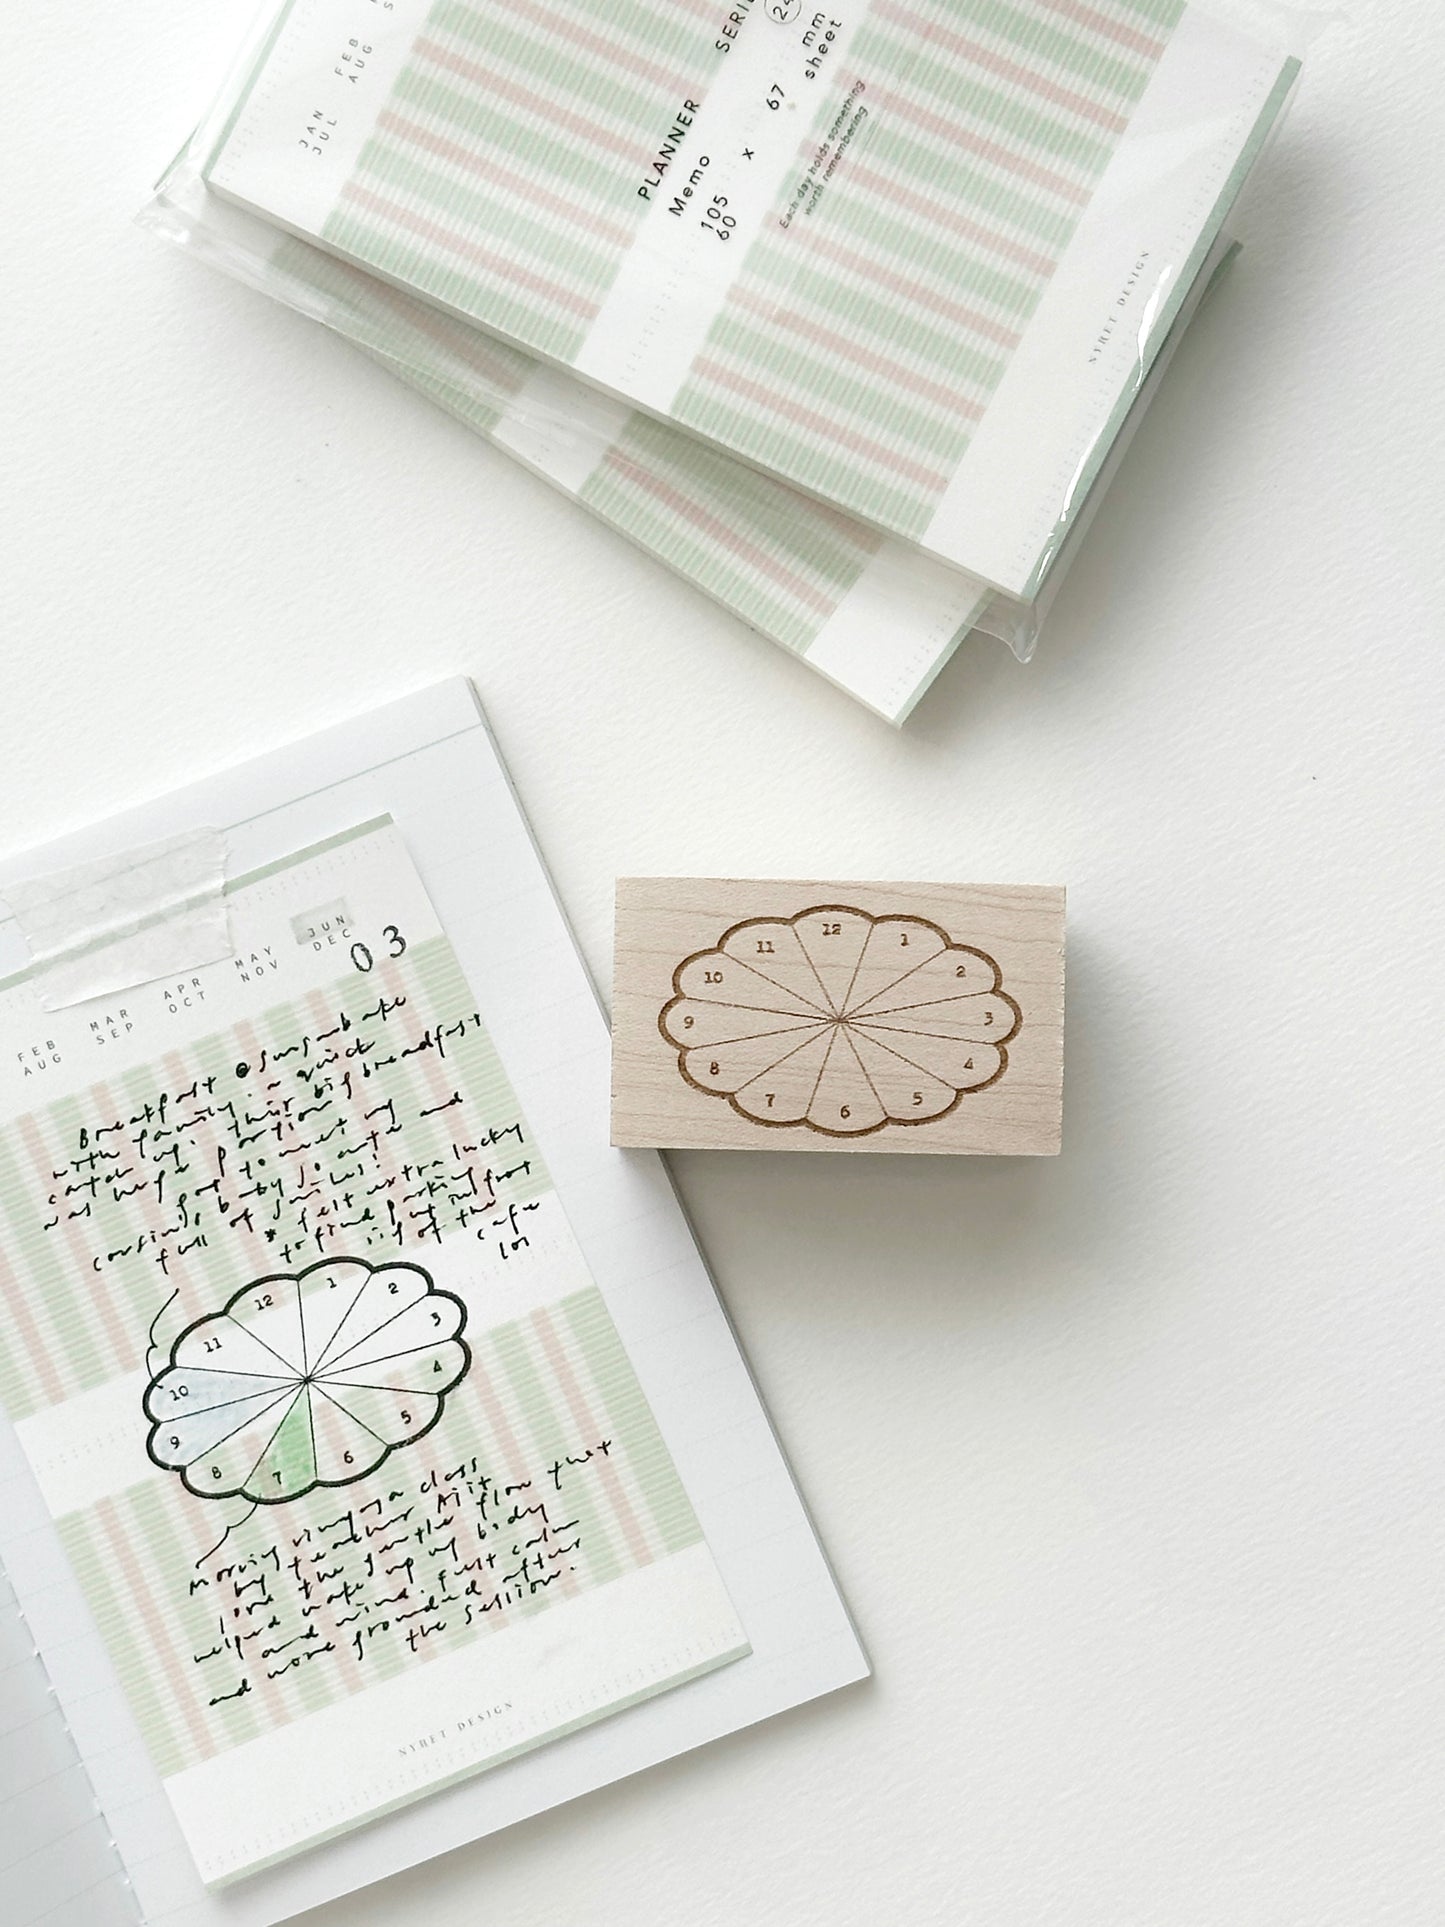 JAN
JUL
FEB
AUG
PLANNER
Memo
105 x 67 mm
60 sheet
Each day holds something
worth remembering
NYRET DESIGN
12
1
2
3
4
5
6
7
8
9
10
11
FEB
AUG
MAR
SEP
APR
OCT
MAY
NOV
JUN
DEC
03
Breakfast @
with family. a quick
catch up. their big breakfast
was huge portion
got to meet my
cousin's baby Jo ante and
full of smiles!
* felt extra lucky
to find parking
of the cafe
lol
12
1
2
3
4
5
6
7
8
9
10
11
morning vinyoga class
by teacher Ajit
love the gentle flow that
helped wake up my body
and mind. felt calm
and more grounded after
the session.
NYRET DESIGN